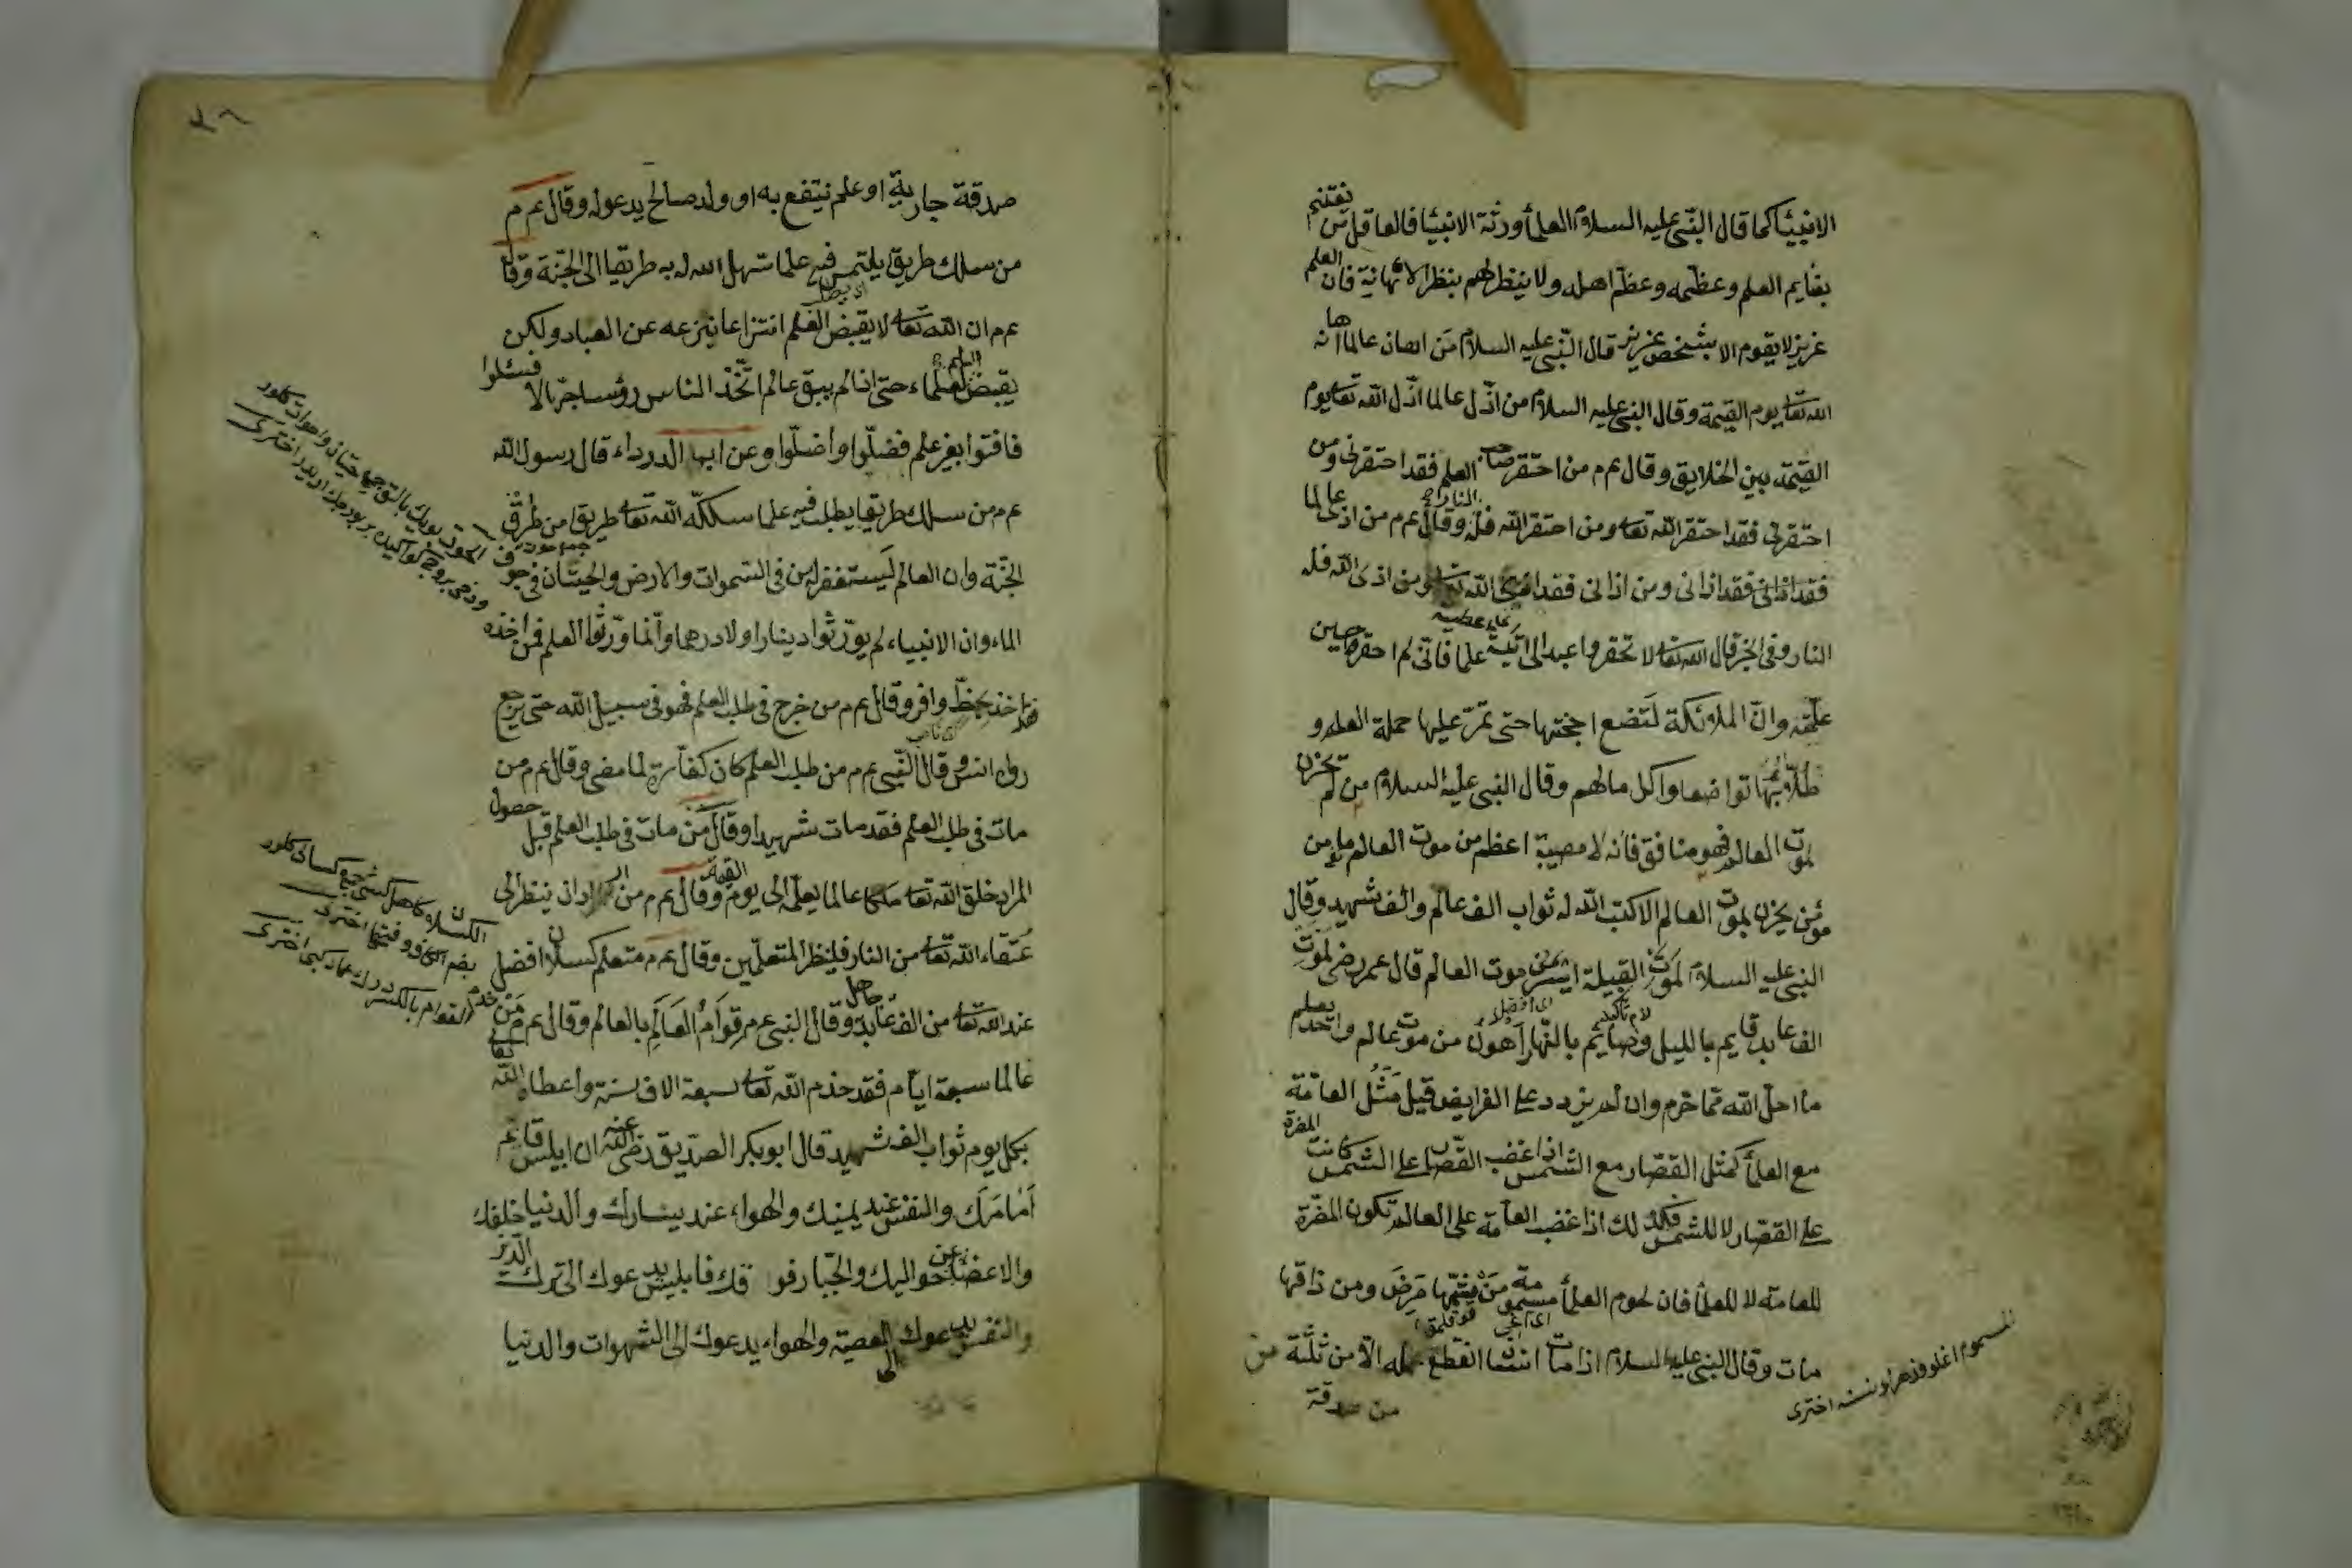 الانبيا كما قال النبى عليه السلام العلما ورثة الانبيا فالعاقل من يغتنم
بقايم العلم وعظمه وعظم اهله ولا ينظر لهم بنظر الاهانية فان العلم
عزيز لا يقوم الا بشخص عزيز قال النبى عليه السلام من اهان عالما اهانه
الله تعا يوم القيمة وقال النبى عليه السلام من اذل عالما اذل الله تعا يوم
القيمة بين الخلايق وقال عم م من احتقر صاحب العلم فقد احتقرنى ومن
احتقرنى فقد احتقر الله تعا ومن احتقر الله فله النار وقال عم م من اذى عالما
فقد اذانى ومن اذانى فقد اذى الله تعا ومن اذى الله فله
النار وفى الخبر قال الله تعا لا تحقروا عبدا اتيته علما فانى لم احقره حين
علمته وان الملائكة لتضع اجنحتها حتى تمر عليها حملة العلم و
طلابها تواضعا واكراما لهم وقال النبى عليه السلام من لم يحزن
لموت العالم فهو منافق فانه لا مصيبة اعظم من موت العالم ما من
مؤمن يحزن بموت العالم الا كتب الله له ثواب الف عالم والف شهيد وقال
النبى عليه السلام لموت القبيلة ايسر من موت العالم قال عمر رضى لموت
الف عابد قايم بالليل وصايم بالنهار اهون من موت عالم واحد يعلم
ما احل الله مما حرم وان لم يزدد على الفرايض قيل مثل العامة
مع العلما كمثل القصار مع الشمس اذا غضب القصار على الشمس كانت المضرة
على القصار لا للشمس فكذلك اذا غضب العامة على العالم تكون المضرة
للعامة لا للعلما فان لحوم العلما مسمومة من شمها مرض ومن ذاقها
مات وقال النبى عليه السلام اذا مات انسان انقطع عمله الا من ثلثة من
من صدقة
صدقة جارية او علم ينتفع به او ولد صالح يدعو له وقال عم م
من سلك طريق يلتمس فيه علما سهل الله له به طريقا الى الجنة وقال
عم م ان الله تعا لا يقبض العلم انتزاعا ينزعه عن العباد ولكن
يقبض العلماء حتى اذا لم يبق عالم اتخذ الناس رؤسا جهالا فسئلوا
فافتوا بغير علم فضلوا واضلوا وعن ابى الدرداء قال رسول الله
عم م من سلك طريقا يطلب فيه علما سلكه الله تعا طريق من طرق
الجنة وان العالم ليستغفر له من فى السموات والارض والحيتان فى جوف
الماء وان الانبياء لم يورثوا دينارا ولا درهما وانما ورثوا العلم فمن اخذه
فقد اخذ بحظ وافر وقال عم م من خرج فى طلب العلم فهو فى سبيل الله حتى يرجع
رواه انس وقال النبى عم م من طلب العلم كان كفارة لما مضى وقال عم م من
مات فى طلب العلم فقد مات شهيدا وقال من مات فى طلب العلم قبل حصول
المراد خلق الله تعا ملكا عالما يعلمه الى يوم القيمة وقال عم م من اراد ان ينظر الى
عتقاء الله تعا من النار فلينظر المتعلمين وقال عم م متعلم كسلان افضل
عند الله تعا من الف عابد جاهل وقال النبى عم م قوام العالم بالعالم وقال عم م من خدم
عالما سبعة ايام فقد خدم الله تعا سبعة الاف سنة واعطاه الله تعالى
بكل يوم ثواب الف شهيد قال ابو بكر الصديق رضى الله عنه ان ابليس قائم
امامك والنفس عند يمينك والهواء عند يسارك والدنيا خلفك
والاعضا عن حواليك والجبار فوقك فابليس يدعوك الى ترك الدين
والنفس يدعوك الى المعصية والهواء يدعوك الى الشهوات والدنيا